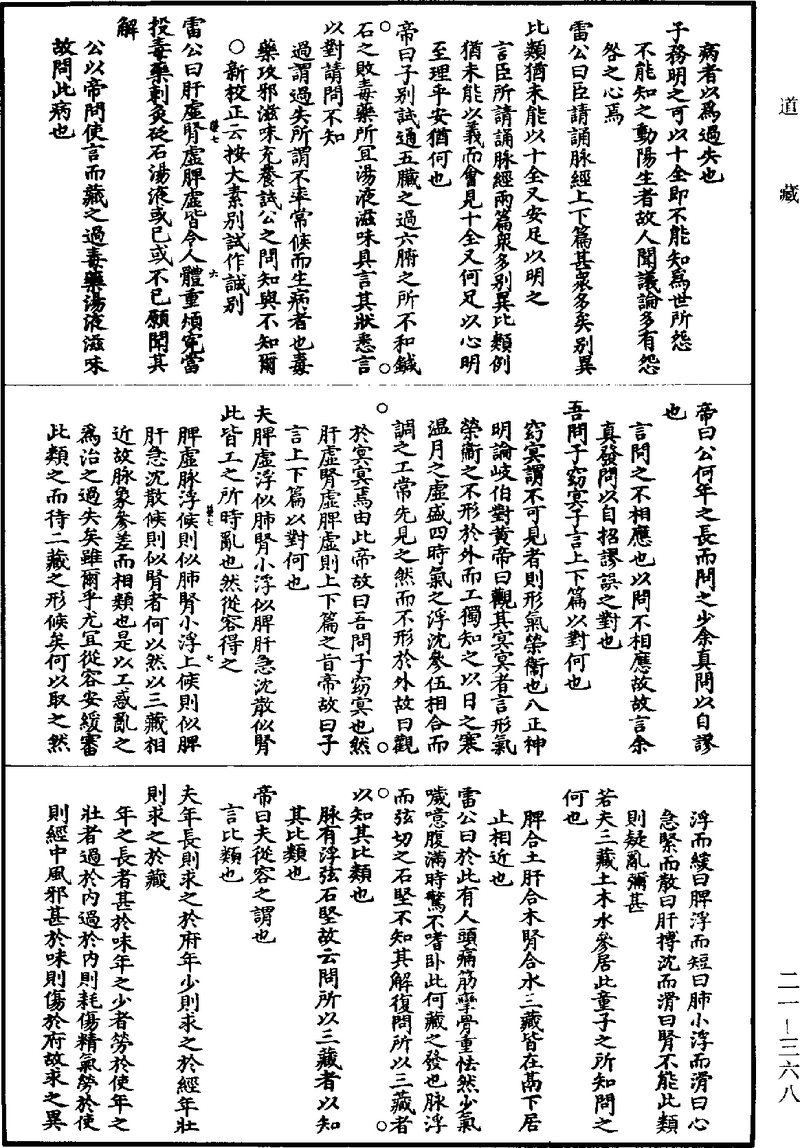 道藏
病者以爲過失也
子務明之可以十全即不能知爲世所怨
不能知之動陽生者故人聞議論多有怨
咎之心焉
雷公曰臣請誦脉經上下篇甚衆多矣別異
比類猶未能以十全又安足以明之
言臣所請誦脉經兩篇衆多別異比類例
猶未能以義而會見十全又何足以心明
至理乎安猶何也
帝曰子別試通五臟之過六腑之所不和鍼
石之敗毒藥所宜湯液滋味具言其狀悉言
以對請問不知
過謂過失所謂不率常候而生病者也毒
藥攻邪滋味充養試公之問知與不知爾
○新校正云按太素別試作誠別
雷公曰肝虛腎虛脾虛皆令人體重煩寃當
投毒藥刺灸砭石湯液或已或不已願聞其
解
公以帝問使言而藏之過毒藥湯液滋味
故問此病也
帝曰公何年之長而問之少余真問以自謬
也
言問之不相應也以問不相應故故言余
真發問以自招謬誤之對也
吾問子窈冥子言上下篇以對何也
窈冥謂不可見者則形氣榮衞也八正神
明論岐伯對黃帝曰觀其冥冥者言形氣
榮衞之不形於外而工獨知之以日之寒
温月之虛盛四時氣之浮沈參伍相合而
調之工常先見之然而不形於外故曰觀
於冥冥焉由此帝故曰吾問子窈冥也然
肝虛腎虛脾虛則上下篇之旨帝故曰子
言上下篇以對何也
夫脾虛浮似肺腎小浮似脾肝急沈散似腎
此皆工之所時亂也然從容得之
脾虛脉浮候則似肺腎小浮上候則似脾
肝急沈散候則似腎者何以然以三藏相
近故脉象參差而相類也是以工惑亂之
爲治之過失矣雖爾乎尤宜從容安緩審
此類之而待二藏之形候矣何以取之然
浮而緩曰脾浮而短曰肺小浮而滑曰心
急緊而散曰肝搏沈而滑曰腎不能此類
則疑亂彌甚
若夫三藏土木水參居此童子之所知問之
何也
脾合土肝合木腎合水三藏皆在鬲下居
止相近也
雷公曰於此有人頭痛筋攣骨重怯然少氣
噦噫腹滿時驚不嗜卧此何藏之發也脉浮
而弦切之石堅不知其解復問所以三藏者
以知其比類也
脉有浮弦石堅故云問所以三藏者以知
其比類也
帝曰夫從容之謂也
言比類也
夫年長則求之於府年少則求之於經年壯
則求之於藏
年之長者甚於味年之少者勞於使年之
壯者過於內過於內則耗傷精氣勞於使
則經中風邪甚於味則傷於府故求之異
二一—三六八